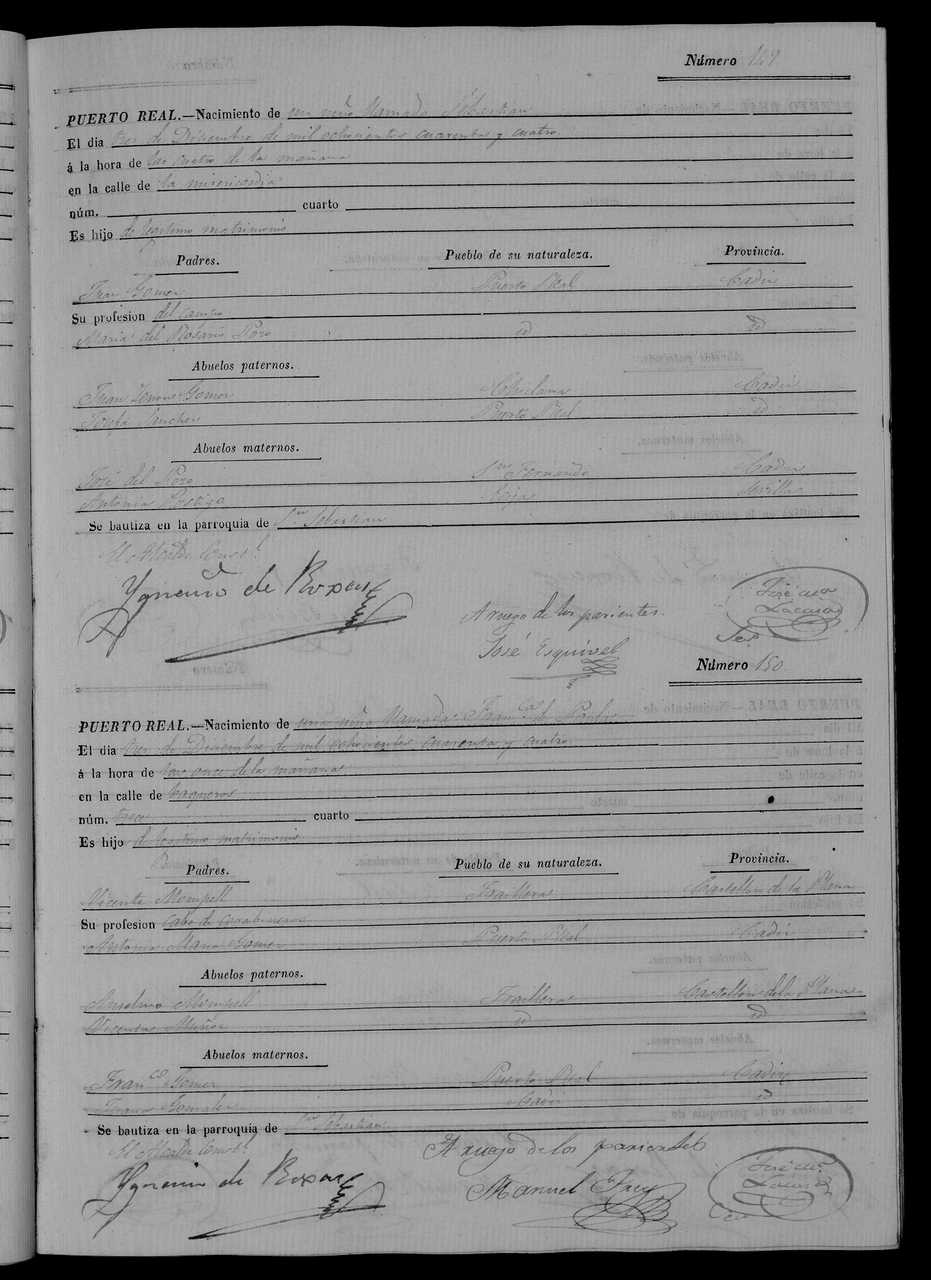 Número 149
PUERTO REAL.—Nacimiento de un niño llamado Sebastian
El dia tres de Diciembre de mil ochocientos cuarenta y cuatro
á la hora de las cuatro de la mañana
en la calle de la misericordia
núm. cuarto
Es hijo de legitimo matrimonio
Padres. Pueblo de su naturaleza. Provincia.
Fran Gomez Puerto Real Cadiz
Su profesion del campo
Maria del Rosario Pozo id id
Abuelos paternos.
Fran Gomez Chiclana Cadiz
Josefa Sanchez Puerto Real id
Abuelos maternos.
José del Pozo Sn Fernando Cadiz
Antonia Ecija Sevilla
Se bautiza en la parroquia de Sn Sebastian
El Alcalde Const.l
Ygnacio de
A ruego de los parientes
José Esquivel
José
Lacusa
Sec
Número 150
PUERTO REAL.—Nacimiento de una niña llamada Fran.ca de Paula
El dia tres de Diciembre de mil ochocientos cuarenta y cuatro
á la hora de las once de la mañana
en la calle de Vaqueros
núm. trece cuarto
Es hijo de legitimo matrimonio
Padres. Pueblo de su naturaleza. Provincia.
Vicente Mompell Castellon de la Plana
Su profesion Cabo de carabineros
Antonia Maria Gomez Puerto Real Cadiz
Abuelos paternos.
Anselmo Mompell Castellon de la Plana
Vicenta Muñoz id id
Abuelos maternos.
Fran.co Gomez Puerto Real Cadiz
Gonzalez Cadiz id
Se bautiza en la parroquia de Sn Sebastian
El Alcalde Const.l
Ygnacio de
A ruego de los parientes
Manuel
José
Lacusa